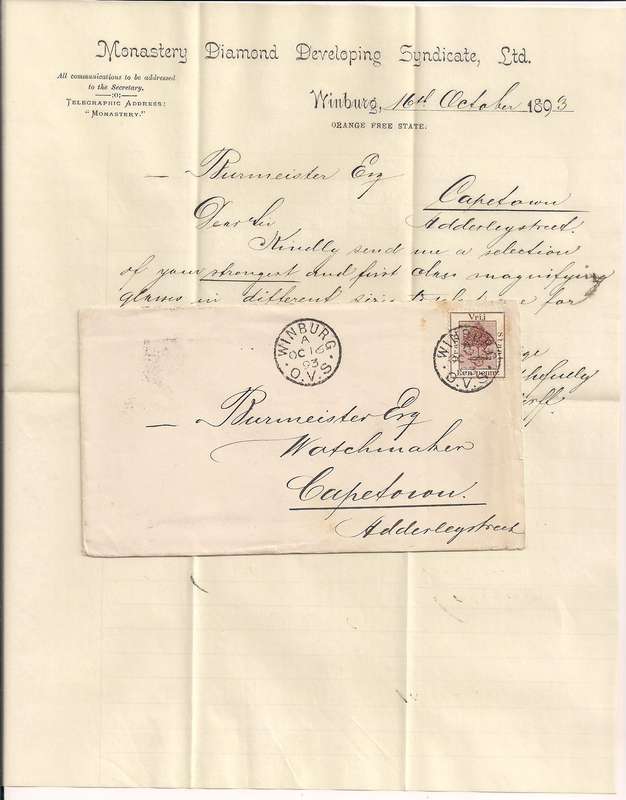 Monastery Diamond Developing Syndicate, Ltd.
All communications to be addressed
to the Secretary.
TELEGRAPHIC ADDRESS:
"MONASTERY."
Winburg, 16th October 1893
ORANGE FREE STATE.
— Burmeister Esq
Capetown
Adderleystreet.
Dear Sir
Kindly send me a selection
of your strongest and first class magnifying
glasses in different for
WINBURG
A
OC 16
93
O.V.S.
Vrij
Een penny
WINBURG
O.V.S.
— Burmeister Esq
Watchmaker
Capetown.
Adderleystreet